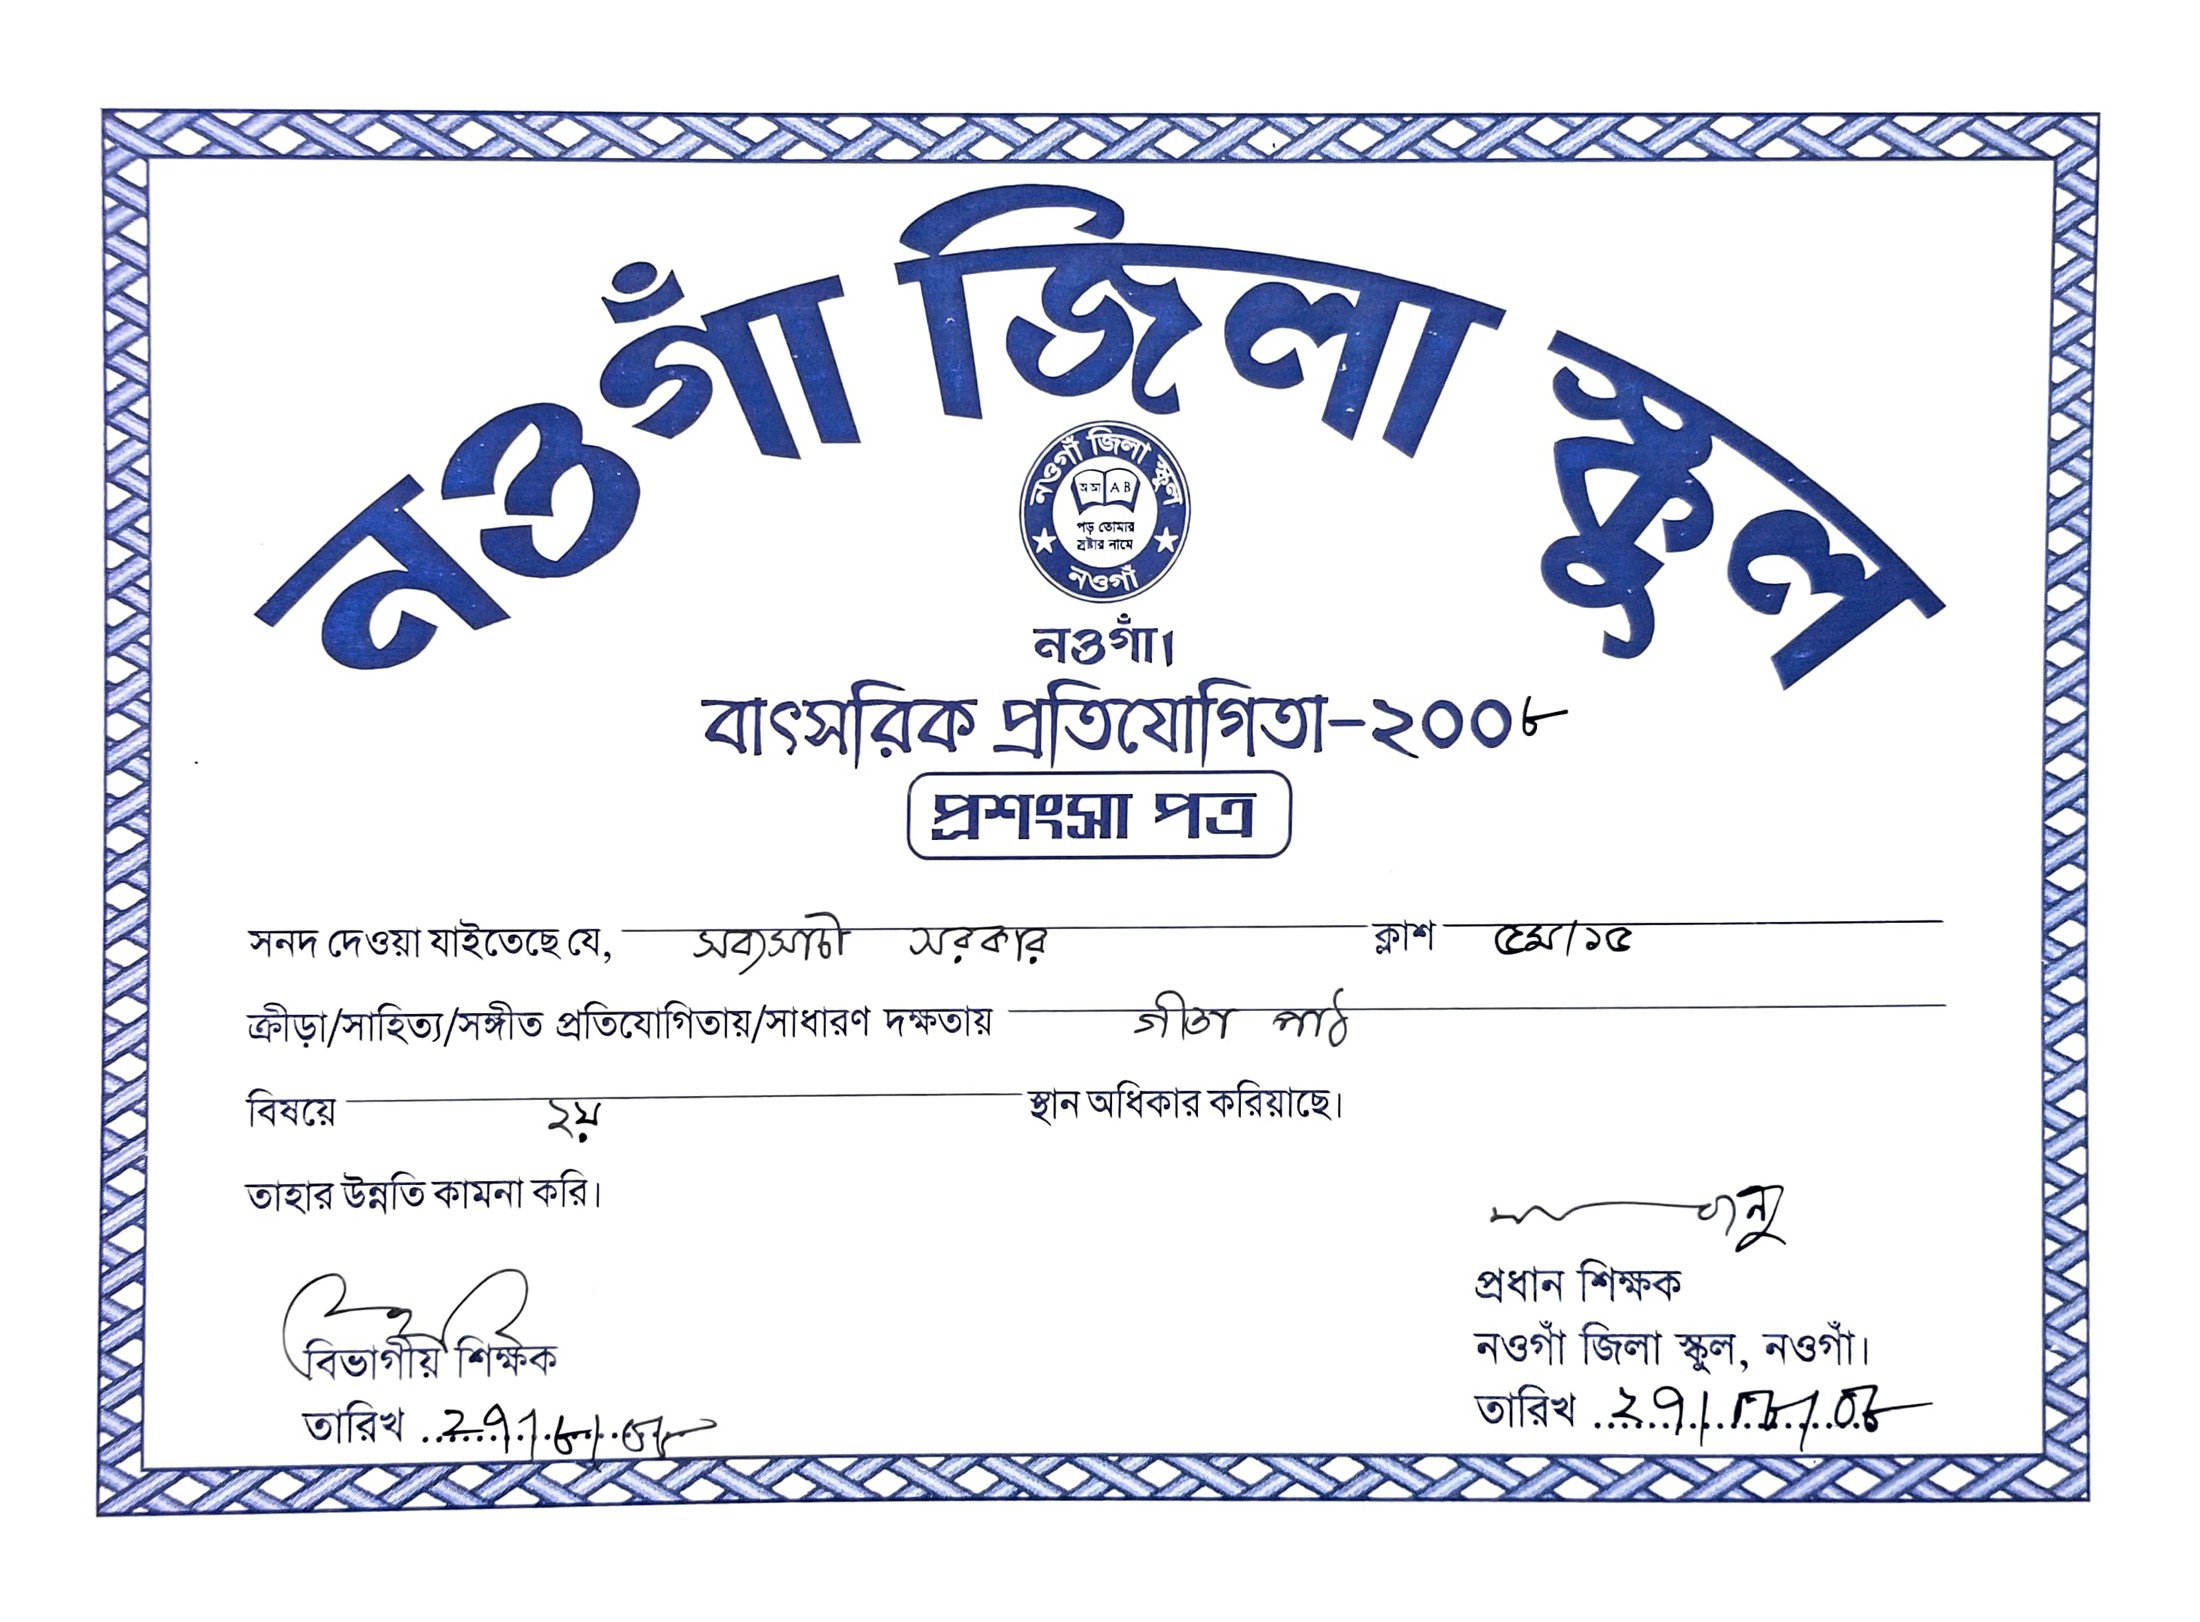 নওগাঁ জিলা স্কুল
নওগাঁ জিলা স্কুল
অআ AB
পড় তোমার
স্রষ্টার নামে
নওগাঁ
নওগাঁ।
বাৎসরিক প্রতিযোগিতা-২০০৮
প্রশংসা পত্র
সনদ দেওয়া যাইতেছে যে, সব্যসাচী সরকার ক্লাশ ৫ম/১৫
ক্রীড়া/সাহিত্য/সঙ্গীত প্রতিযোগিতায়/সাধারণ দক্ষতায় গীতা পাঠ
বিষয়ে ২য় স্থান অধিকার করিয়াছে।
তাহার উন্নতি কামনা করি।
প্রধান শিক্ষক
নওগাঁ জিলা স্কুল, নওগাঁ।
তারিখ ২৭/০৮/০৮
বিভাগীয় শিক্ষক
তারিখ ২৭/৮/০৮